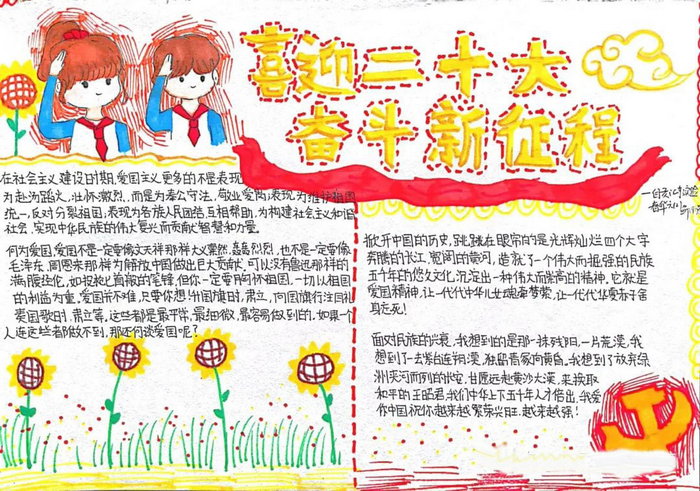 喜迎二十大
奋斗新征程
在社会主义建设时期,爱国主义更多的不是表现
为赴汤蹈火、壮怀激烈,而是为奉公守法、敬业爱岗;表现为维护祖国
统一,反对分裂祖国;表现为各族人民团结互相帮助,为构建社会主义和谐
社会,实现中华民族的伟大复兴而贡献智慧和力量。
何为爱国,爱国不是一定要像文天祥那样大义凛然,轰轰烈烈,也不是一定要像
毛泽东,周恩来那样为解放中国做出巨大贡献,可以没有鲁迅那样的
满腹豪化,如投枪匕首般的笔锋,但你一定要胸怀祖国,一切以祖国
的利益为重,爱国并不难,只要你想!升国旗时,肃立,向国旗行注目礼
奏国歌时,肃立等,这些都是最平常,最细微,最容易做到的。如果一个
人连这些都做不到,那还何谈爱国呢?
掀开中国的历史,跳跃在眼帘的是光辉灿烂四个大字
奔腾的长江,宽阔的黄河,造就了一个伟大而坚强的民族
五千年的悠久文化,沉淀出一种伟大而崇高的精神,它就是
爱国精神,让一代代中华儿女魂牵梦萦,让一代代华夏赤子含
身忘死!
面对民族的兴衰,我想到的是那一抹残阳,一片荒漠,我
想到了一去紫台连朔漠,独留青冢向黄昏。我想到了放弃绿
洲夹河而列的
甘愿远赴黄沙大漠,来换取
和平的王昭君,我们中华上下五千年人才倍出,我爱
你中国,祝你越来越繁荣兴旺,越来越强!